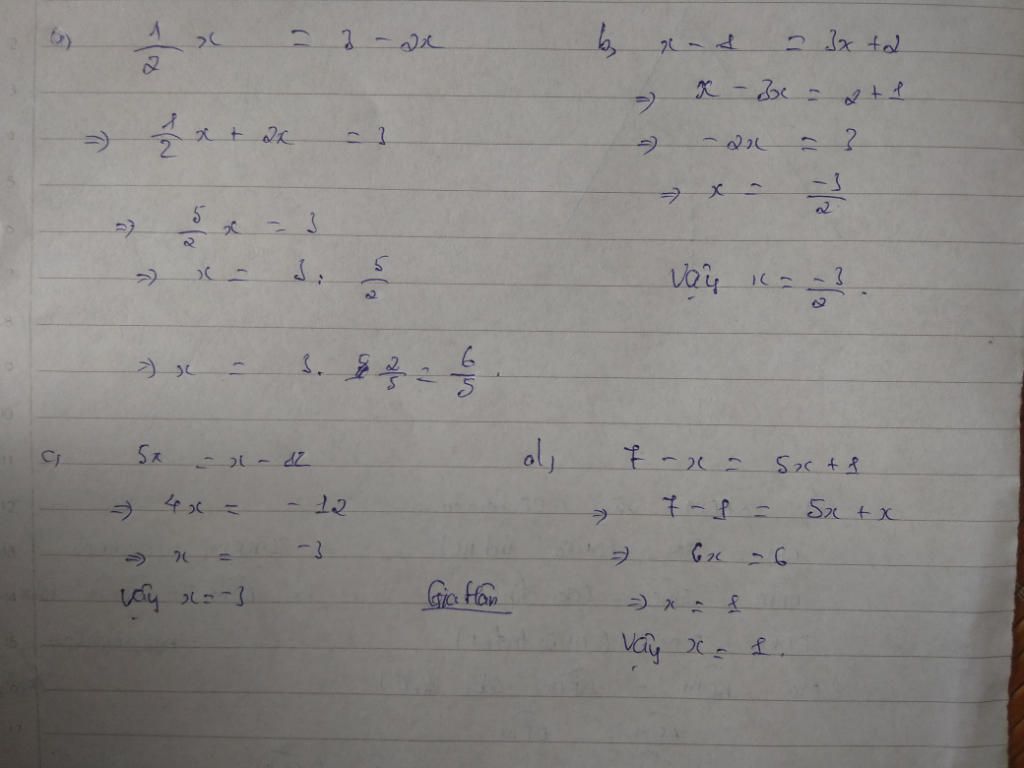 a) 1/2 x = 3 - 2x
=> 1/2 x + 2x = 3
=> 5/2 x = 3
=> x = 3 : 5/2
=> x = 3 . 2/5 = 6/5 .
b, x - 1 = 3x + 2
=> x - 3x = 2 + 1
=> - 2x = 3
=> x = -3/2
Vậy x = -3/2 .
c, 5x = x - 12
=> 4x = - 12
=> x = -3
Vậy x = -3
d, 7 - x = 5x + 1
=> 7 - 1 = 5x + x
=> 6x = 6
=> x = 1
Vậy x = 1 .